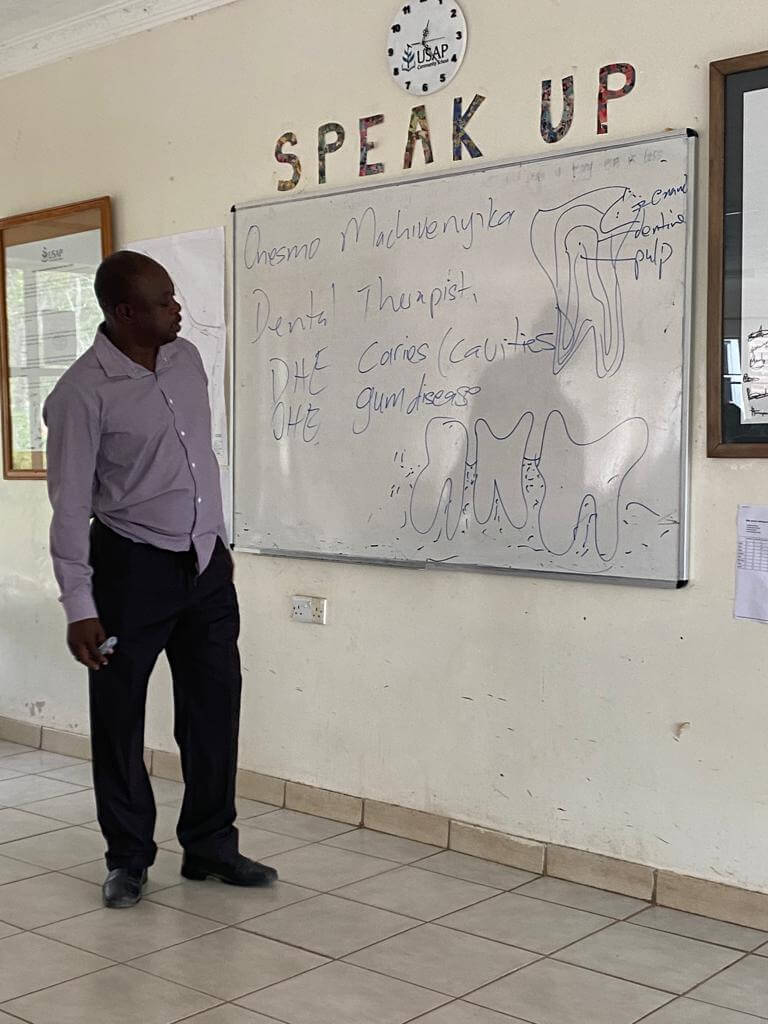 USAP
Community School
SPEAK UP
USAP
Onesmo Machivenyika
Dental Therapist,
DHE Caries (cavities
OHE gum disease
dentine
pulp